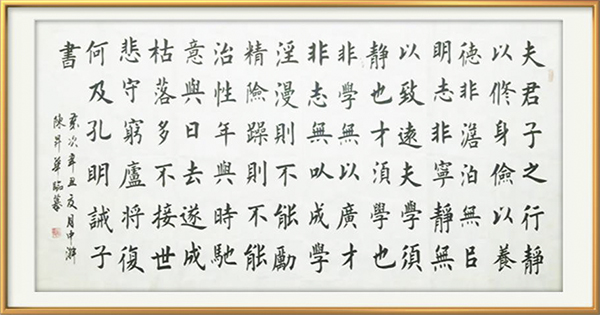 夫君子之行靜
以修身儉以養
德非澹泊無㠯
明志非寧靜無
以致遠夫學須
靜也才須學也
非學無以廣才
非志無㕥成學
淫漫則不能勵
精險躁則不能
治性年與時馳
意與日去遂成
枯落多不接世
悲守窮廬將復
何及孔明誡子
書
次辛丑夏月中澣
陳昇華臨摹